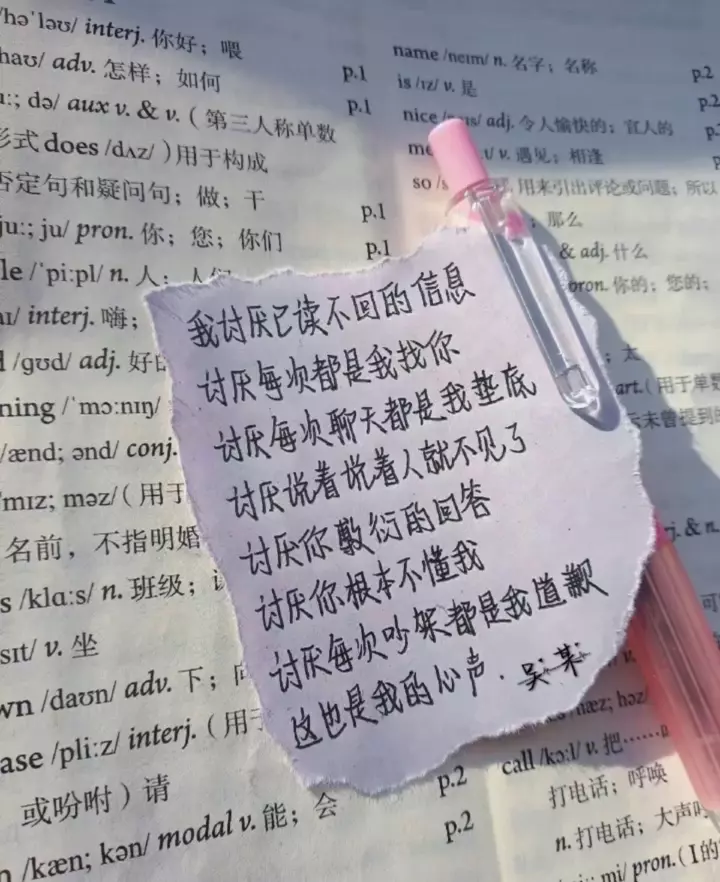 /hə'ləʊ/ interj. 你好；喂
haʊ/ adv. 怎样；如何
p.1
uː; də/ aux v. & v.（第三人称单数
p.1
形式 does /dʌz/）用于构成
否定句和疑问句；做；干
p.1
juː; ju/ pron. 你；您；你们
p.1
le /'piːpl/ n. 人；人们
aɪ/ interj. 嗨；
/ɡʊd/ adj. 好的
ning /'mɔːnɪŋ/
/ænd; ənd/ conj.
mɪz; məz/（用于
名前，不指明婚
s /klɑːs/ n. 班级；
sɪt/ v. 坐
wn /daʊn/ adv. 下；向
ase /pliːz/ interj.（用于
或吩咐）请
p.2
n /kæn; kən/ modal v. 能；会
p.2
name /neɪm/ n. 名字；名称
p.2
is /ɪz/ v. 是
p.2
nice /naɪs/ adj. 令人愉快的；宜人的
v. 遇见；相逢
so /s 用来引出评论或问题；所以
那么
& adj. 什么
pron. 你的；您的；
太
art.（用于单数
未曾提到的
我讨厌已读不回的信息
讨厌每次都是我找你
讨厌每次聊天都是我垫底
讨厌说着说着人就不见了
讨厌你敷衍的回答
讨厌你根本不懂我
讨厌每次吵架都是我道歉
这也是我的心声. 吴某
j. & n.
næz; həz/
call /kɔːl/ v. 把……
打电话；呼唤
n. 打电话；大声
mi/ pron.（I的